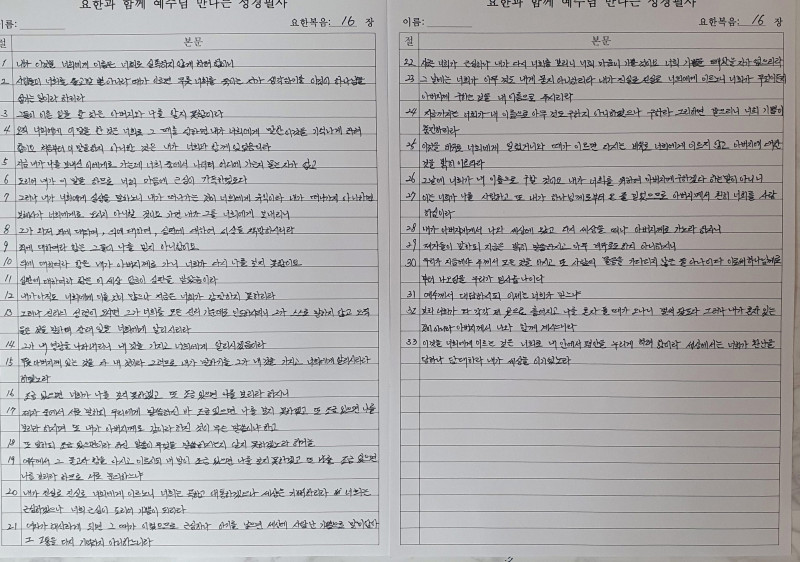 요한과 함께 예수님 만나는 성경필사
이름:
요한복음: 16 장
절 본문
1 내가 이것을 너희에게 이름은 너희로 실족하지 않게 하려 함이니
2 사람들이 너희를 출교할 뿐 아니라 때가 이르면 무릇 너희를 죽이는 자가 생각하기를 이것이 하나님을
섬기는 일이라 하리라
3 그들이 이런 일을 할 것은 아버지와 나를 알지 못함이라
4 오직 너희에게 이 말을 한 것은 너희로 그 때를 당하면 내가 너희에게 말한 이것을 기억나게 하려
함이요 처음부터 이 말을 하지 아니한 것은 내가 너희와 함께 있었음이라
5 지금 내가 나를 보내신 이에게로 가는데 너희 중에서 나더러 어디로 가는지 묻는 자가 없고
6 도리어 내가 이 말을 하므로 너희 마음에 근심이 가득하였도다
7 그러나 내가 너희에게 실상을 말하노니 내가 떠나가는 것이 너희에게 유익이라 내가 떠나가지 아니하면
보혜사가 너희에게로 오시지 아니할 것이요 가면 내가 그를 너희에게로 보내리니
8 그가 와서 죄에 대하여, 의에 대하여, 심판에 대하여 세상을 책망하시리라
9 죄에 대하여라 함은 그들이 나를 믿지 아니함이요
10 의에 대하여라 함은 내가 아버지께로 가니 너희가 다시 나를 보지 못함이요
11 심판에 대하여라 함은 이 세상 임금이 심판을 받았음이라
12 내가 아직도 너희에게 이를 것이 많으나 지금은 너희가 감당하지 못하리라
13 그러나 진리의 성령이 오시면 그가 너희를 모든 진리 가운데로 인도하시리니 그가 스스로 말하지 않고 오직
들은 것을 말하며 장래 일을 너희에게 알리시리라
14 그가 내 영광을 나타내리니 내 것을 가지고 너희에게 알리시겠음이라
15 무릇 아버지께 있는 것은 다 내 것이라 그러므로 내가 말하기를 그가 내 것을 가지고 너희에게 알리시리라
하였노라
16 조금 있으면 너희가 나를 보지 못하겠고 또 조금 있으면 나를 보리라 하시니
17 제자 중에서 서로 말하되 우리에게 말씀하신 바 조금 있으면 나를 보지 못하겠고 또 조금 있으면 나를
보리라 하시며 또 내가 아버지께로 감이라 하신 것이 무슨 말씀이냐 하고
18 또 말하되 조금 있으면이라 하신 말씀이 무엇을 말씀하시는지 알지 못하겠노라 하거늘
19 예수께서 그 묻고자 함을 아시고 이르시되 내 말이 조금 있으면 나를 보지 못하겠고 또 조금 있으면
나를 보리라 하므로 서로 문의하느냐
20 내가 진실로 진실로 너희에게 이르노니 너희는 곡하고 애통하겠으나 세상은 기뻐하리라 너희는
근심하겠으나 너희 근심이 도리어 기쁨이 되리라
21 여자가 해산하게 되면 그 때가 이르렀으므로 근심하나 아기를 낳으면 세상에 사람 난 기쁨으로 말미암아
그 고통을 다시 기억하지 아니하느니라
요한과 함께 예수님 만나는 성경필사
이름:
요한복음: 16 장
절 본문
22 지금은 너희가 근심하나 내가 다시 너희를 보리니 너희 마음이 기쁠 것이요 너희 기쁨을 빼앗을 자가 없으리라
23 그 날에는 너희가 아무 것도 내게 묻지 아니하리라 내가 진실로 진실로 너희에게 이르노니 너희가 무엇이든지
아버지께 구하는 것을 내 이름으로 주시리라
24 지금까지는 너희가 내 이름으로 아무 것도 구하지 아니하였으나 구하라 그리하면 받으리니 너희 기쁨이
충만하리라
25 이것을 비유로 너희에게 일렀거니와 때가 이르면 다시는 비유로 너희에게 이르지 않고 아버지에 대한
것을 밝히 이르리라
26 그 날에 너희가 내 이름으로 구할 것이요 내가 너희를 위하여 아버지께 구하겠다 하는 말이 아니니
27 이는 너희가 나를 사랑하고 또 내가 하나님께로부터 온 줄 믿었으므로 아버지께서 친히 너희를 사랑
하심이라
28 내가 아버지에게서 나와 세상에 왔고 다시 세상을 떠나 아버지께로 가노라 하시니
29 제자들이 말하되 지금은 밝히 말씀하시고 아무 비유로도 하지 아니하시니
30 우리가 지금에야 주께서 모든 것을 아시고 또 사람의 물음을 기다리시지 않는 줄 아나이다 이로써 하나님께로
부터 나오심을 우리가 믿사옵나이다
31 예수께서 대답하시되 이제는 너희가 믿느냐
32 보라 너희가 다 각각 제 곳으로 흩어지고 나를 혼자 둘 때가 오나니 벌써 왔도다 그러나 내가 혼자 있는
것이 아니라 아버지께서 나와 함께 계시느니라
33 이것을 너희에게 이르는 것은 너희로 내 안에서 평안을 누리게 하려 함이라 세상에서는 너희가 환난을
당하나 담대하라 내가 세상을 이기었노라